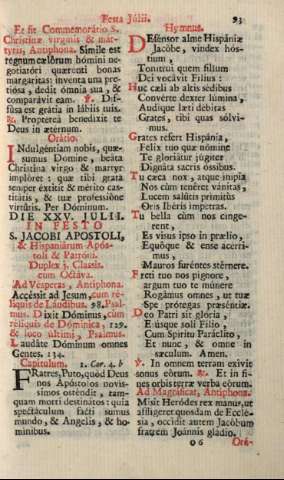 Festa Júlii. 93
Et fit Commemorátio S.
Christinæ virginis & mar-
tyris, Antiphona. Simile est
regnum cælórum hómini ne-
gotiatóri quærenti bonas
margarítas: inventa una pre-
tiósa, dedit ómnia sua, &
comparávit eam. ℣. Dif-
fúsa est grátia in lábiis tuis.
℟. Proptereà benedíxit te
Deus in æternum.
Orátio.
INdulgéntiam nobis, quæ-
sumus Domine, beáta
Christína virgo & martyr
implóret: quæ tibi grata
semper éxtitit & mérito cas-
titátis, & tuæ professióne
virtútis. Per Dóminum.
DIE XXV. JULII.
IN FESTO
S. JACOBI APOSTOLI,
& Hispaniárum Após-
toli & Patróni.
Duplex j. Classis.
cum Octáva.
Ad Vésperas, Antiphona.
Accéssit ad Jesum, cum ré-
liquis de Láudibus. 98. Psal-
mus. Dixit Dóminus, cùm
réliquis de Dóminica, 129.
& loco último, Psalmus.
Laudáte Dóminum omnes
Gentes. 134.
Capítulum. 1. Cor. 4. b
FRatres, Puto, quòd Deus
nos Apóstolos novís-
simos osténdit, tam-
quam morti destinátos: quia
spectáculum facti sumus
mundo, & Angelis, & ho-
mínibus.
Hymnus.
DEfénsor alme Hispániæ
Jacóbe, vindex hós-
tium,
Tonítrui quem fílium
Dei vocávit Fílius:
Huc cæli ab altis sédibus
Convérte dexter lúmina,
Audíque læti débitas
Grates, tibi quas sólvi-
mus.
Grates refert Hispánia,
Felix tuo quæ nómine
Te gloriátur júgiter
Dignáta sacris óssibus.
Tu cæca nox, atque ímpia
Nos cùm tenéret vánitas,
Lucem salútis prímitùs
Oris Ibéris ímpetras.
Tu bella cùm nos cínge-
rent,
Es visus ipso in prælio,
Equóque & ense acérri-
mus,
Mauros furéntes stérnere.
Freti tuo nos pígnore,
árguum tuo te múnere
Rogámus omnes, ut tuæ
Spe prótegas præséntiæ.
Deo Patri sit glória,
Ejúsque soli Fílio,
Cum Spíritu Paráclito,
Et nunc, & omne in
sæculum. Amen.
℣. In omnem terram exívit
sonus eórum. ℟. Et in fi-
nes orbis terræ verba eórum.
Ad Magníficat, Antiphona.
Misit Heródes rex manus, ut
affligeret quosdam de Ecclé-
sia, occídit autem Jacóbum
fratrem Joánnis gládio.
O6 Orá-